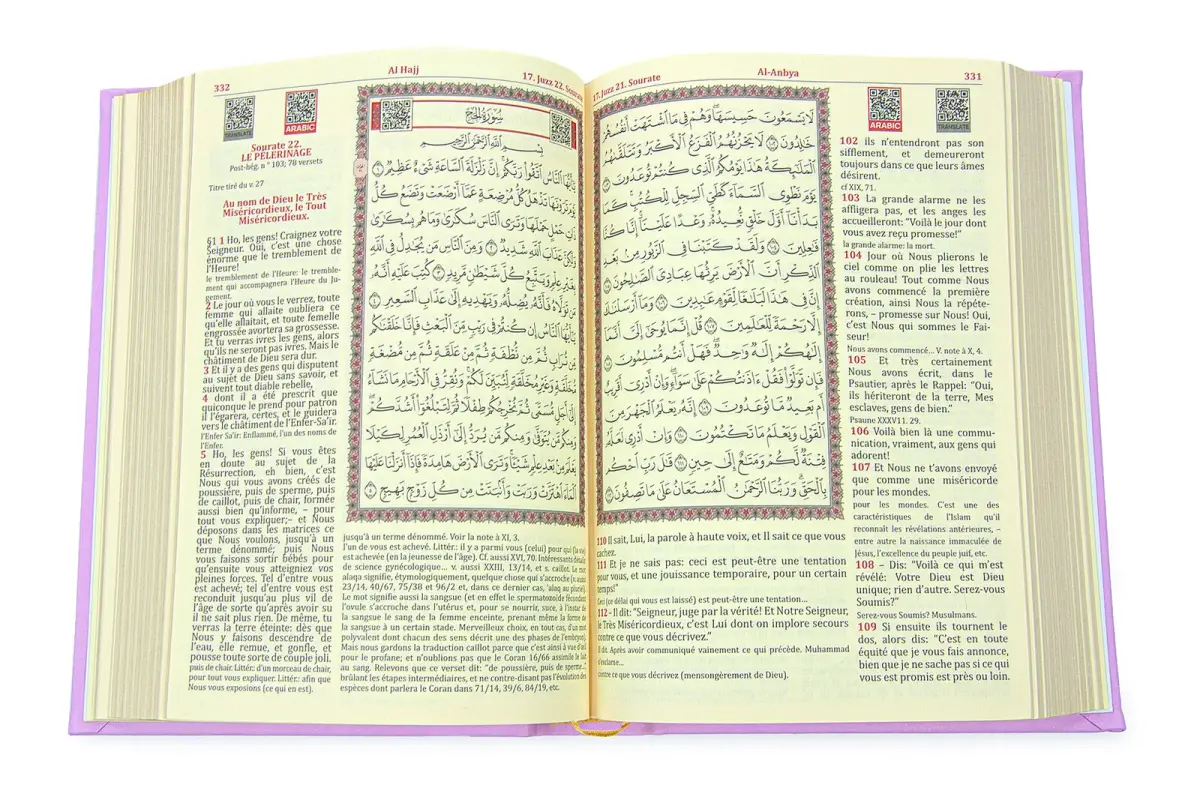 17. Juzz 21. Sourate
Al-Anbya
331
ARABIC
TRANSLATE
لَا يَسْمَعُونَ حَسِيسَهَا وَهُمْ فِي مَا اشْتَهَتْ أَنفُسُهُمْ
خَالِدُونَ ١٠٢ لَا يَحْزُنُهُمُ الْفَزَعُ الْأَكْبَرُ وَتَتَلَقَّاهُمُ
الْمَلَائِكَةُ هَذَا يَوْمُكُمُ الَّذِي كُنتُمْ تُوعَدُونَ ١٠٣
يَوْمَ نَطْوِي السَّمَاءَ كَطَيِّ السِّجِلِّ لِلْكُتُبِ كَمَا
بَدَأْنَا أَوَّلَ خَلْقٍ نُّعِيدُهُ وَعْدًا عَلَيْنَا إِنَّا كُنَّا
فَاعِلِينَ ١٠٤ وَلَقَدْ كَتَبْنَا فِي الزَّبُورِ مِن بَعْدِ
الذِّكْرِ أَنَّ الْأَرْضَ يَرِثُهَا عِبَادِيَ الصَّالِحُونَ ١٠٥
إِنَّ فِي هَذَا لَبَلَاغًا لِّقَوْمٍ عَابِدِينَ ١٠٦ وَمَا أَرْسَلْنَاكَ
إِلَّا رَحْمَةً لِّلْعَالَمِينَ ١٠٧ قُلْ إِنَّمَا يُوحَى إِلَيَّ أَنَّمَا
إِلَهُكُمْ إِلَهٌ وَاحِدٌ فَهَلْ أَنتُم مُّسْلِمُونَ ١٠٨
فَإِن تَوَلَّوْا فَقُلْ آذَنتُكُمْ عَلَى سَوَاءٍ وَإِنْ أَدْرِي أَقَرِيبٌ
أَم بَعِيدٌ مَّا تُوعَدُونَ ١٠٩ إِنَّهُ يَعْلَمُ الْجَهْرَ مِنَ
الْقَوْلِ وَيَعْلَمُ مَا تَكْتُمُونَ ١١٠ وَإِنْ أَدْرِي لَعَلَّهُ
فِتْنَةٌ لَّكُمْ وَمَتَاعٌ إِلَى حِينٍ ١١١ قَالَ رَبِّ احْكُم
بِالْحَقِّ وَرَبُّنَا الرَّحْمَنُ الْمُسْتَعَانُ عَلَى مَا تَصِفُونَ ١١٢
102 ils n'entendront pas son
sifflement, et demeureront
toujours dans ce que leurs âmes
désirent.
cf XIX, 71.
103 La grande alarme ne les
affligera pas, et les anges les
accueilleront: "Voilà le jour dont
vous avez reçu promesse!"
la grande alarme: la mort.
104 Jour où Nous plierons le
ciel comme on plie les lettres
au rouleau! Tout comme Nous
avons commencé la première
création, ainsi Nous la répéte-
rons, – promesse sur Nous! Oui,
c'est Nous qui sommes le Fai-
seur!
Nous avons commencé... V. note à X, 4.
105 Et très certainement
Nous avons écrit, dans le
Psautier, après le Rappel: "Oui,
ils hériteront de la terre, Mes
esclaves, gens de bien."
Psaune XXXV11. 29.
106 Voilà bien là une commu-
nication, vraiment, aux gens qui
adorent!
107 Et Nous ne t'avons envoyé
que comme une miséricorde
pour les mondes.
pour les mondes. C'est une des
caractéristiques de l'Islam qu'il
reconnaît les révélations antérieures, –
entre autre la naissance immaculée de
Jésus, l'excellence du peuple juif, etc.
108 – Dis: "Voilà ce qui m'est
révélé: Votre Dieu est Dieu
unique; rien d'autre. Serez-vous
Soumis?"
Serez-vous Soumis? Musulmans.
109 Si ensuite ils tournent le
dos, alors dis: "C'est en toute
équité que je vous fais annonce,
bien que je ne sache pas si ce qui
vous est promis est près ou loin.
110 Il sait, Lui, la parole à haute voix, et Il sait ce que vous
cachez.
111 Et je ne sais pas: ceci est peut-être une tentation
pour vous, et une jouissance temporaire, pour un certain
temps!"
Ceci (ce délai qui vous est laissé) est peut-être une tentation...
112 - Il dit: "Seigneur, juge par la vérité! Et Notre Seigneur,
le Très Miséricordieux, c'est Lui dont on implore secours
contre ce que vous décrivez."
Il dit. Après avoir communiqué vainement ce qui précède. Muhammad
s'exclame...
contre ce que vous décrivez (mensongèrement de Dieu).
332
Al Hajj
17. Juzz 22. Sourate
TRANSLATE
ARABIC
سُورَةُ الْحَجِّ
بِسْمِ اللَّهِ الرَّحْمَنِ الرَّحِيمِ
يَا أَيُّهَا النَّاسُ اتَّقُوا رَبَّكُمْ إِنَّ زَلْزَلَةَ السَّاعَةِ شَيْءٌ عَظِيمٌ ١
يَوْمَ تَرَوْنَهَا تَذْهَلُ كُلُّ مُرْضِعَةٍ عَمَّا أَرْضَعَتْ وَتَضَعُ كُلُّ
ذَاتِ حَمْلٍ حَمْلَهَا وَتَرَى النَّاسَ سُكَارَى وَمَا هُم بِسُكَارَى
وَلَكِنَّ عَذَابَ اللَّهِ شَدِيدٌ ٢ وَمِنَ النَّاسِ مَن يُجَادِلُ فِي اللَّهِ
بِغَيْرِ عِلْمٍ وَيَتَّبِعُ كُلَّ شَيْطَانٍ مَّرِيدٍ ٣ كُتِبَ عَلَيْهِ أَنَّهُ
مَن تَوَلَّاهُ فَأَنَّهُ يُضِلُّهُ وَيَهْدِيهِ إِلَى عَذَابِ السَّعِيرِ ٤
يَا أَيُّهَا النَّاسُ إِن كُنتُمْ فِي رَيْبٍ مِّنَ الْبَعْثِ فَإِنَّا خَلَقْنَاكُم
مِّن تُرَابٍ ثُمَّ مِن نُّطْفَةٍ ثُمَّ مِنْ عَلَقَةٍ ثُمَّ مِن مُّضْغَةٍ
مُّخَلَّقَةٍ وَغَيْرِ مُخَلَّقَةٍ لِّنُبَيِّنَ لَكُمْ وَنُقِرُّ فِي الْأَرْحَامِ مَا نَشَاءُ
إِلَى أَجَلٍ مُّسَمًّى ثُمَّ نُخْرِجُكُمْ طِفْلًا ثُمَّ لِتَبْلُغُوا أَشُدَّكُمْ
وَمِنكُم مَّن يُتَوَفَّى وَمِنكُم مَّن يُرَدُّ إِلَى أَرْذَلِ الْعُمُرِ لِكَيْلَا
يَعْلَمَ مِن بَعْدِ عِلْمٍ شَيْئًا وَتَرَى الْأَرْضَ هَامِدَةً فَإِذَا أَنزَلْنَا عَلَيْهَا
الْمَاءَ اهْتَزَّتْ وَرَبَتْ وَأَنبَتَتْ مِن كُلِّ زَوْجٍ بَهِيجٍ ٥
Sourate 22.
LE PÈLERINAGE
Post-hég. n° 103; 78 versets
Titre tiré du v. 27
Au nom de Dieu le Très
Miséricordieux, le Tout
Miséricordieux.
§1 1 Ho, les gens! Craignez votre
Seigneur. Oui, c'est une chose
énorme que le tremblement de
l'Heure!
le tremblement de l'Heure: le tremble-
ment qui accompagnera l'Heure du Ju-
gement.
2 Le jour où vous le verrez, toute
femme qui allaite oubliera ce
qu'elle allaitait, et toute femelle
engrossée avortera sa grossesse.
Et tu verras ivres les gens, alors
qu'ils ne seront pas ivres. Mais le
châtiment de Dieu sera dur.
3 Et il y a des gens qui disputent
au sujet de Dieu sans savoir, et
suivent tout diable rebelle,
4 dont il a été prescrit que
quiconque le prend pour patron
il l'égarera, certes, et le guidera
vers le châtiment de l'Enfer-Sa'ir.
l'Enfer Sa'ir: Enflammé, l'un des noms de
l'Enfer.
5 Ho, les gens! Si vous êtes
en doute au sujet de la
Résurrection, eh bien, c'est
Nous qui vous avons créés de
poussière, puis de sperme, puis
de caillot, puis de chair, formée
aussi bien qu'informe, – pour
tout vous expliquer;– et Nous
déposons dans les matrices ce
que Nous voulons, jusqu'à un
terme dénommé; puis Nous
vous faisons sortir bébés pour
qu'ensuite vous atteigniez vos
pleines forces. Tel d'entre vous
est achevé; tel d'entre vous est
reconduit jusqu'au plus vil de
l'âge de sorte qu'après avoir su
il ne sait plus rien. De même, tu
verras la terre éteinte: dès que
Nous y faisons descendre de
l'eau, elle remue, et gonfle, et
pousse toute sorte de couple joli.
puis de chair. Littér.: d'un morceau de chair,
pour tout vous expliquer. Littér.: afin que
Nous vous exposions (ce qui en est).
jusqu'à un terme dénommé. Voir la note à XI, 3.
l'un de vous est achevé. Littér.: il y a parmi vous (celui) pour qui (la vie)
est achevée (en la jeunesse de l'âge). Cf. aussi XVI, 70. Intéressants détails
de science gynécologique... v. aussi XXIII, 13/14, et s. caillot. Le mot
alaqa signifie, étymologiquement, quelque chose qui s'accroche (n. aussi
23/14, 40/67, 75/38 et 96/2 et, dans ce dernier cas, 'alaq au pluriel).
Le mot signifie aussi la sangsue (et en effet le spermatozoïde fécondant
l'ovule s'accroche dans l'utérus et, pour se nourrir, suce, à l'instar de
la sangsue le sang de la femme enceinte, prenant même la forme de
la sangsue à un certain stade. Merveilleux choix, en tout cas, d'un mot
polyvalent dont chacun des sens décrit une des phases de l'embryon).
Mais nous gardons la traduction caillot parce que c'est ainsi à vue d'œil
pour le profane; et n'oublions pas que le Coran 16/66 assimile le lait
au sang. Relevons que ce verset dit: "de poussière, puis de sperme..."
brûlant les étapes intermédiaires, et ne contre-disant pas l'évolution des
espèces dont parlera le Coran dans 71/14, 39/6, 84/19, etc.